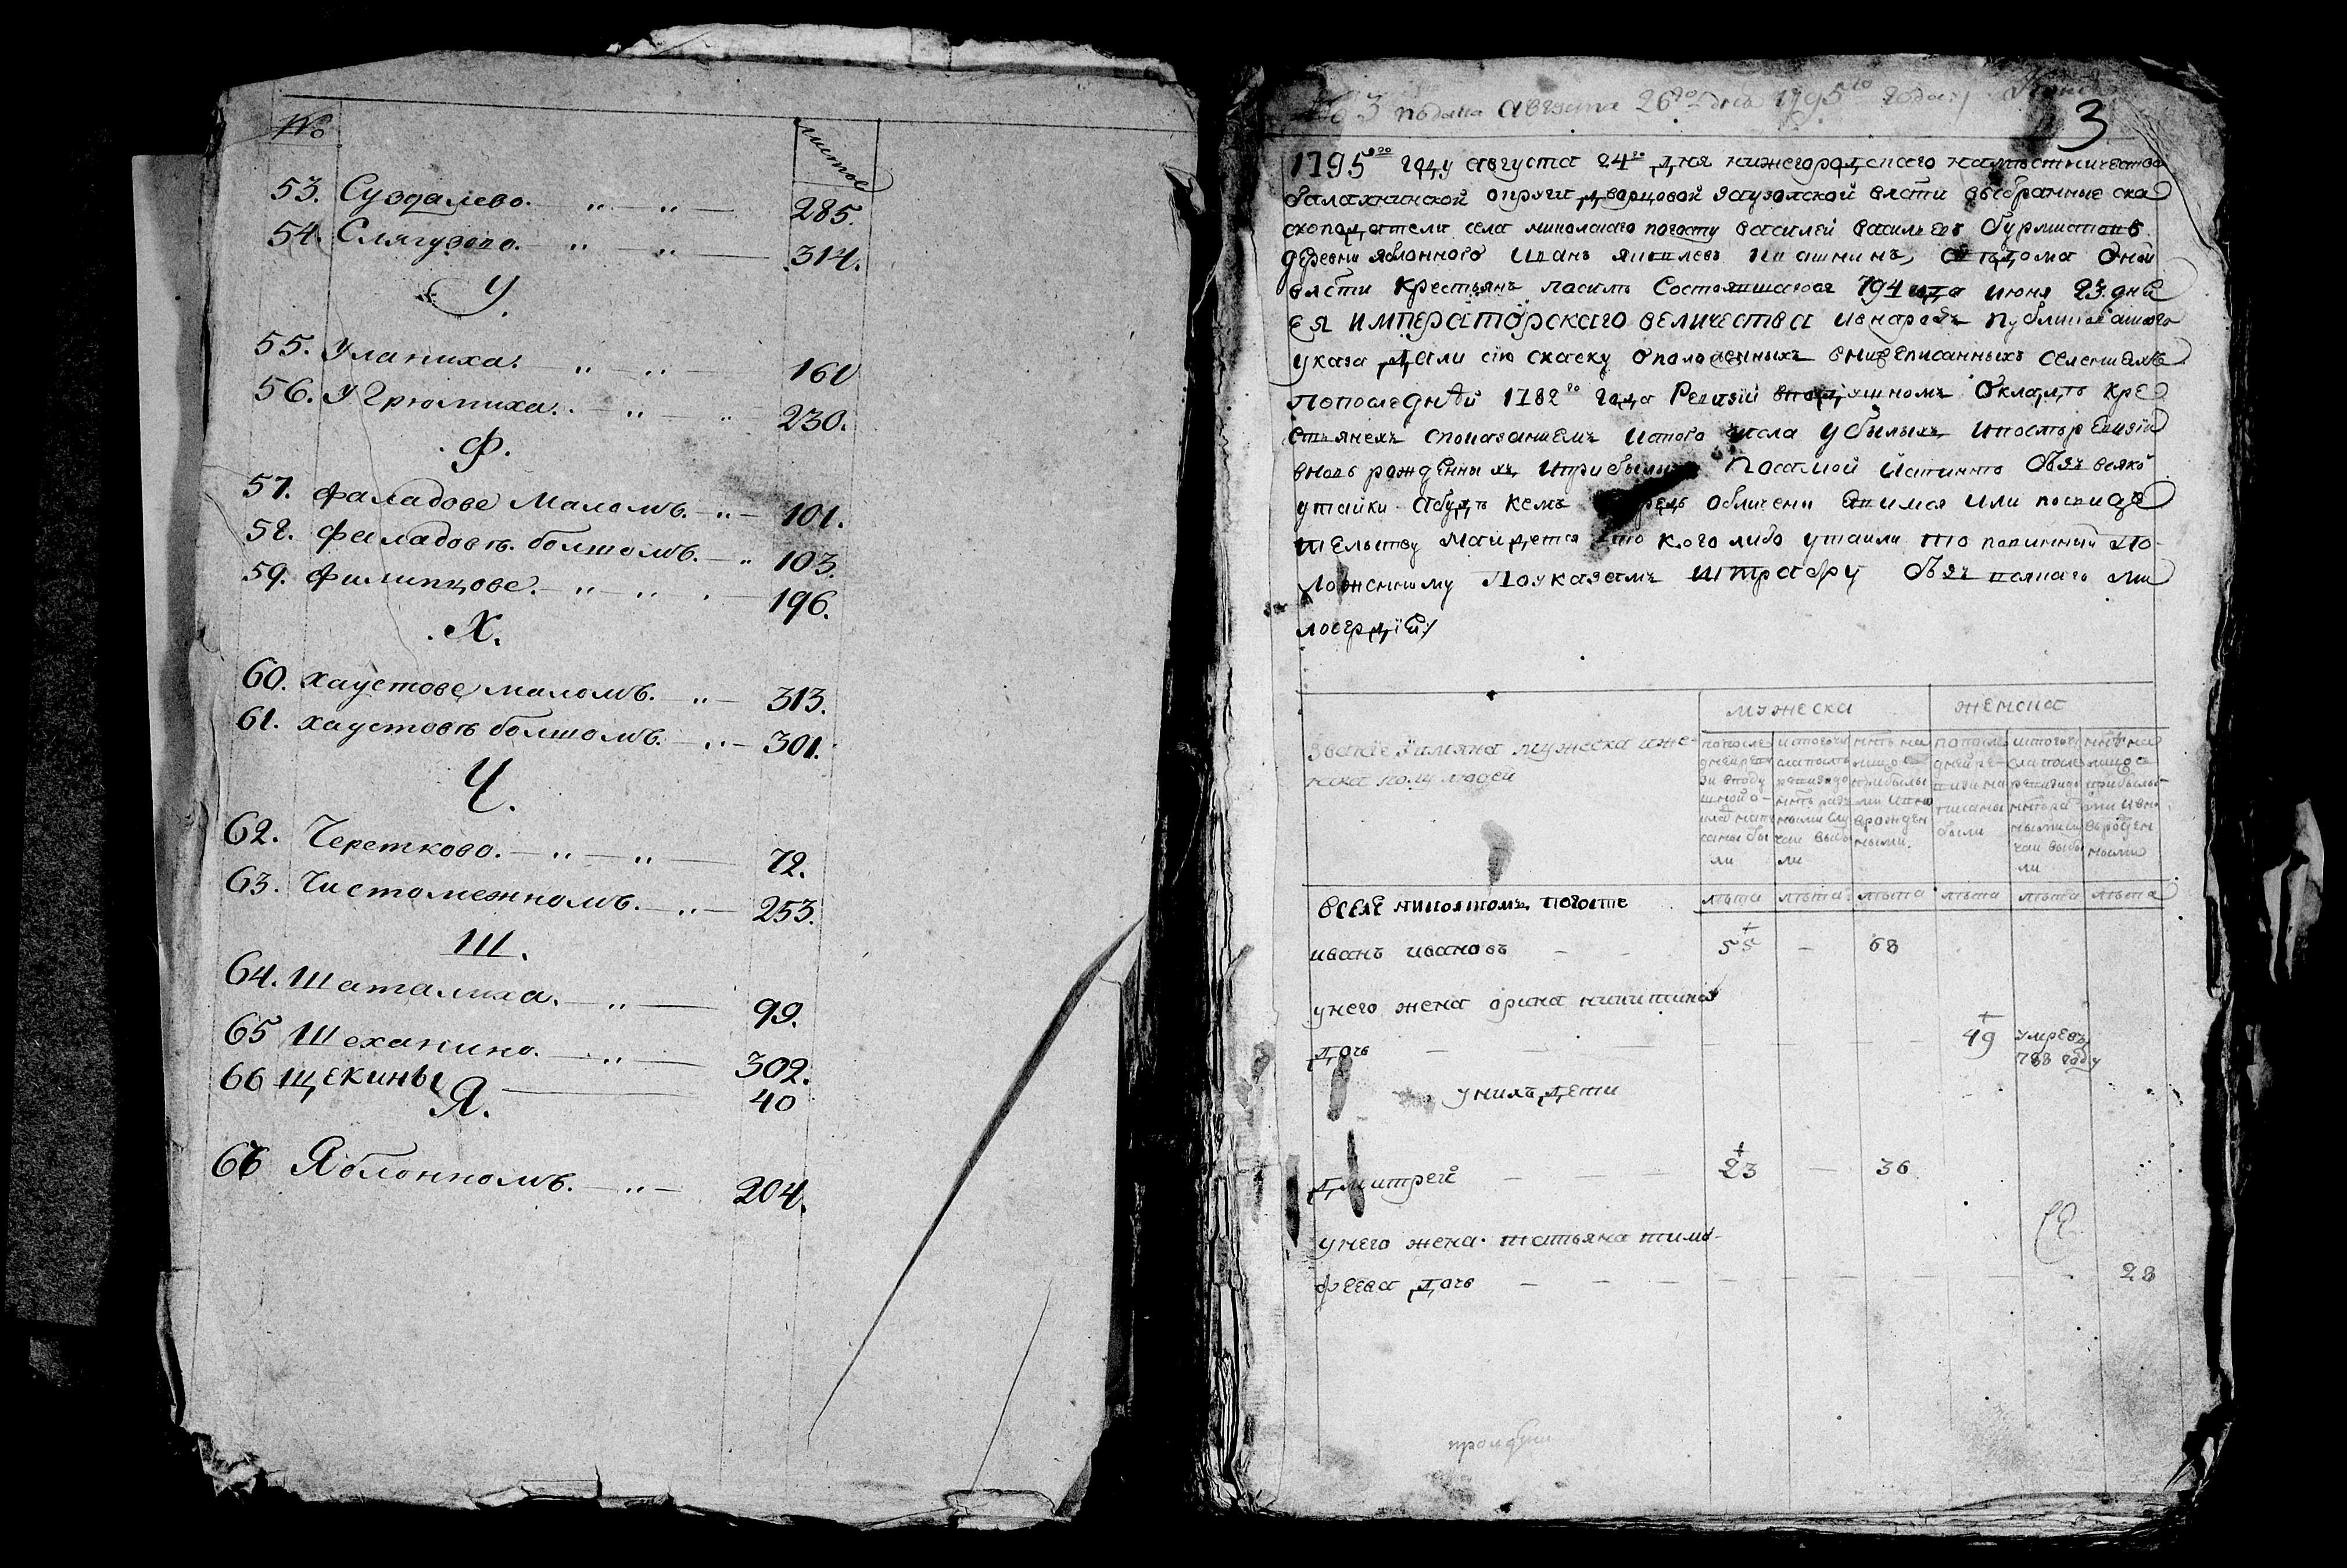 № листъ
53. Суздалево. — „ — „ — 285.
54. Слягузово. — „ — „ — 314.
У.
55. Уланиха. — „ — „ — 161
56. Угрюмиха. — „ — „ 230.
Ф.
57. Фаладове Маломъ. — „ — 101.
58. Фаладовѣ болшомъ. — „ 103.
59. Филипцове. — „ — „ — 196.
Х.
60. Хаустове маломъ. — „ — 313.
61. Хаустовѣ болшомъ. — „ — 301.
Ч.
62. Черетково. — „ — „ — 72.
63. Чистомежномъ. — „ — 253.
Ш.
64. Шаталиха. — „ — 99.
65 Шеханино. — „ — 302.
66 Щекины — 40
Я.
66 Яблонномъ. — „ — 204.
3 подана августа 26го дня 1795го года
3
1795го году августа 24го дня нижегородскаго намѣстничества
балахнинской округи дворцовой заузолской власти выбранные ска
скоподатели села николскаго погосту василей васильевъ бурмистовъ
деревни яблонного иванъ яковлевъ ивашнинъ, отдома оной
власти крестьянъ посилѣ состоявшагося 794 года июня 23 дня
ея императорскаго величества ивнародъ публикованного
указа дали сію скаску оположенныхъ внижеписанныхъ селенияхъ
попоследнѣй 1782го года ревизіи вподушномъ окладѣ кре
стьянехъ споказаниемъ истого числа убылыхъ ипослѣ ревизіи
вновь рожденныхъ иприбылыхъ посамой истиннѣ безъ всякой
утайки абудѣ кемъ обличени явимся или посвиде
тельству найдется что кого либо утаили то повинны по-
ложенному поуказамъ штрафу безъ всякаго ми
лосердія:/
мужеска женска
звание имяна мужеска иже-
нска полу людей
попосле
дней реви
зи вподу
шной о-
кладъ напи
саны бы
ли
истогочи
слапослѣ
ревизидо
нѣ разны
ми слу
чаи выбы
ли
нынѣ на
лицо съ
прибылы
ми ивно
врожден
ными.
попосле
дней ре-
визи на
писаны
были
истогочи
слапосле
ревизидо
нѣ ра
зными слу
чаи выбы
ли
нынѣ на
лицо с
прибылы-
ми ивно
врожден
ными
лѣта лѣта лѣта лѣта лѣта лѣта
вселе николскомъ погосте
иванъ ивановъ — — 55 — 68
унего жена орина никитина
дочь — — — — — — 49 умре въ
788 году
унихъ дети
дмитрей — — — 23 — 36
унего жена татьяна тимо-
феева дочь — — — — — — — — 28